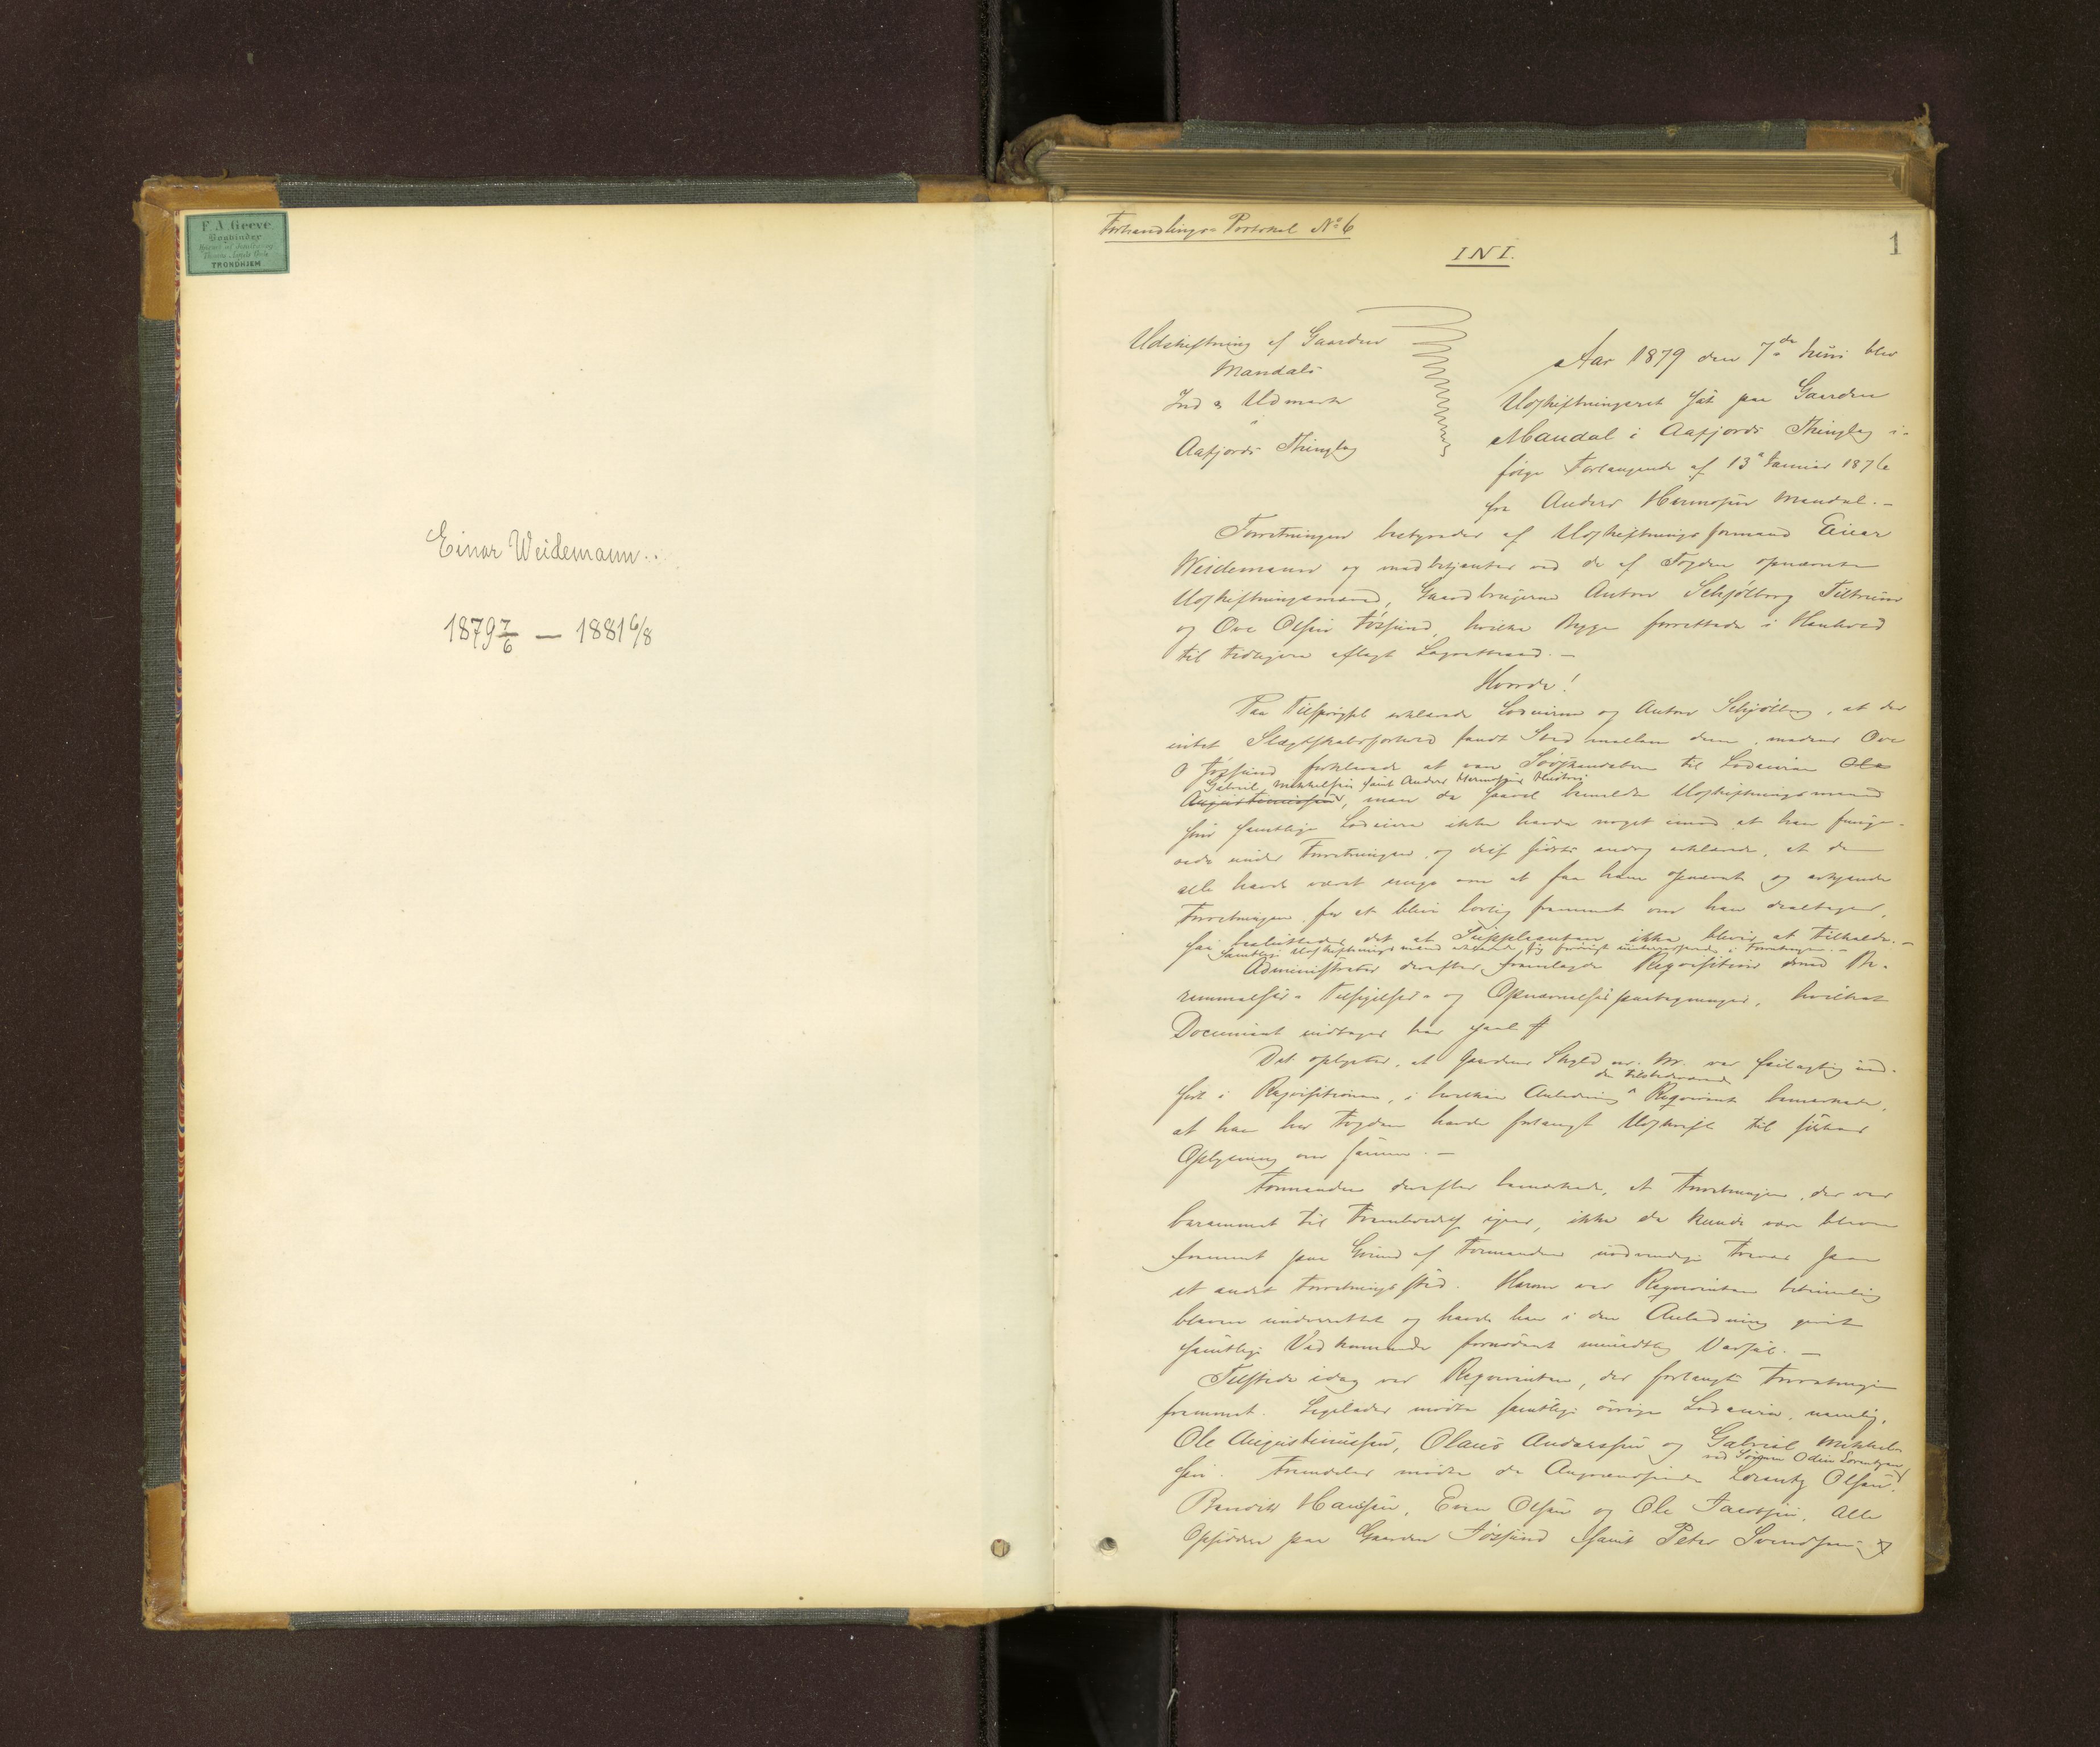 F. A. Greve.
Bogbinder
TRONDHJEM
Einar Weidemann..
1879 7/6 — 1881 6/8
Forhandlings-Protokol No 6
1
I N I.
Udskiftning af Gaarden
Mandals
Ind & Udmark
i
Aafjords Thinglag
Aar 1879 den 7de Juni blev
Udskiftningsret sat paa Gaarden
Mandal i Aafjords Thinglag i-
følge Forlangende af 13 Januar 1876
fra Anders Hermosen Mandal. -
Forretningen bestyredes af Udskiftningsformand Einar
Weidemann og medbetjentes ved de af Fogden opnævnte
Udskiftningsmænd, Gaardbrugerne Anton Schjølberg
og Ove Olsen Føssund, hvilke Begge forrettede i Henhold
til tidligere aflagt Lagretteed. -
Hvorda!
Paa Tilspørgsel erklærede Lodeierne og Anton Schjølberg, at der
intet Slægtskabsforhold fandt Sted mellem dem, medens Ove
O Føssund forklarede at være Sødskendebarn til Lodeieren Ole
Gabriel Mikkelsen samt Anders Hermosens Hustru
Augustinussen, men da saavel bemeldte Udskiftningsmænd
som samtlige Lodeiere ikke havde noget imod at han funge-
rede under Forretningen, og disse sidste endog erklærede, at de
alle havde været enige om at faa ham opnævnt og ansaa
Forretningen for at blive lovlig fremmet om han deeltager,
saa besluttedes det at Suppleanten ikke blev at tilkalde. -
Samtlige Udskiftningsmænd erklærede sig forøvrigt uinteresserede i Forretningen. -
Administrator derefter fremlagde Requisition med Be-
rammelses- Tilsigelses- og Opnævnelsespaategninger, hvilket
Document indtages her saal #
Det oplystes, at Gaardens Skyld m. M. var feilagtig ind-
de tilstedeværende
ført i Requisitionen, i hvilken Anledning ^ Requirent bemærkede,
at han hos Fogden havde forlangt Udskrift til sikker
Oplysning om samme. -
Formanden derefter bemærkede, at Forretningen, der var
berammet til Fremholdelse igaar, ikke da kunde være bleven
fremmet paa Grund af Formandens nødvendige Fravær paa
et andet Forretningssted. Herom var Requirenten betimelig
bleven underrettet og havde han i den Anledning givet
samtlige Vedkommende fornødent mundtlig Varsel. -
Tilstede idag var Requirenten, der forlangte Forretningen
fremmet. Ligeledes mødte samtlige øvrige Lodeiere, nemlig,
Ole Augustinussen, Olaus Anderssen og Gabriel Mikkel-
ved Sønnen Odin Lorentzen
sen. Fremdeles mødte de Angrændsende Lorentz Olsen,
Benedik Hansen, Even Olsen og Ole Jacobsen, Alle
Opsiddere paa Gaarden Føssund samt Peter Svendsen